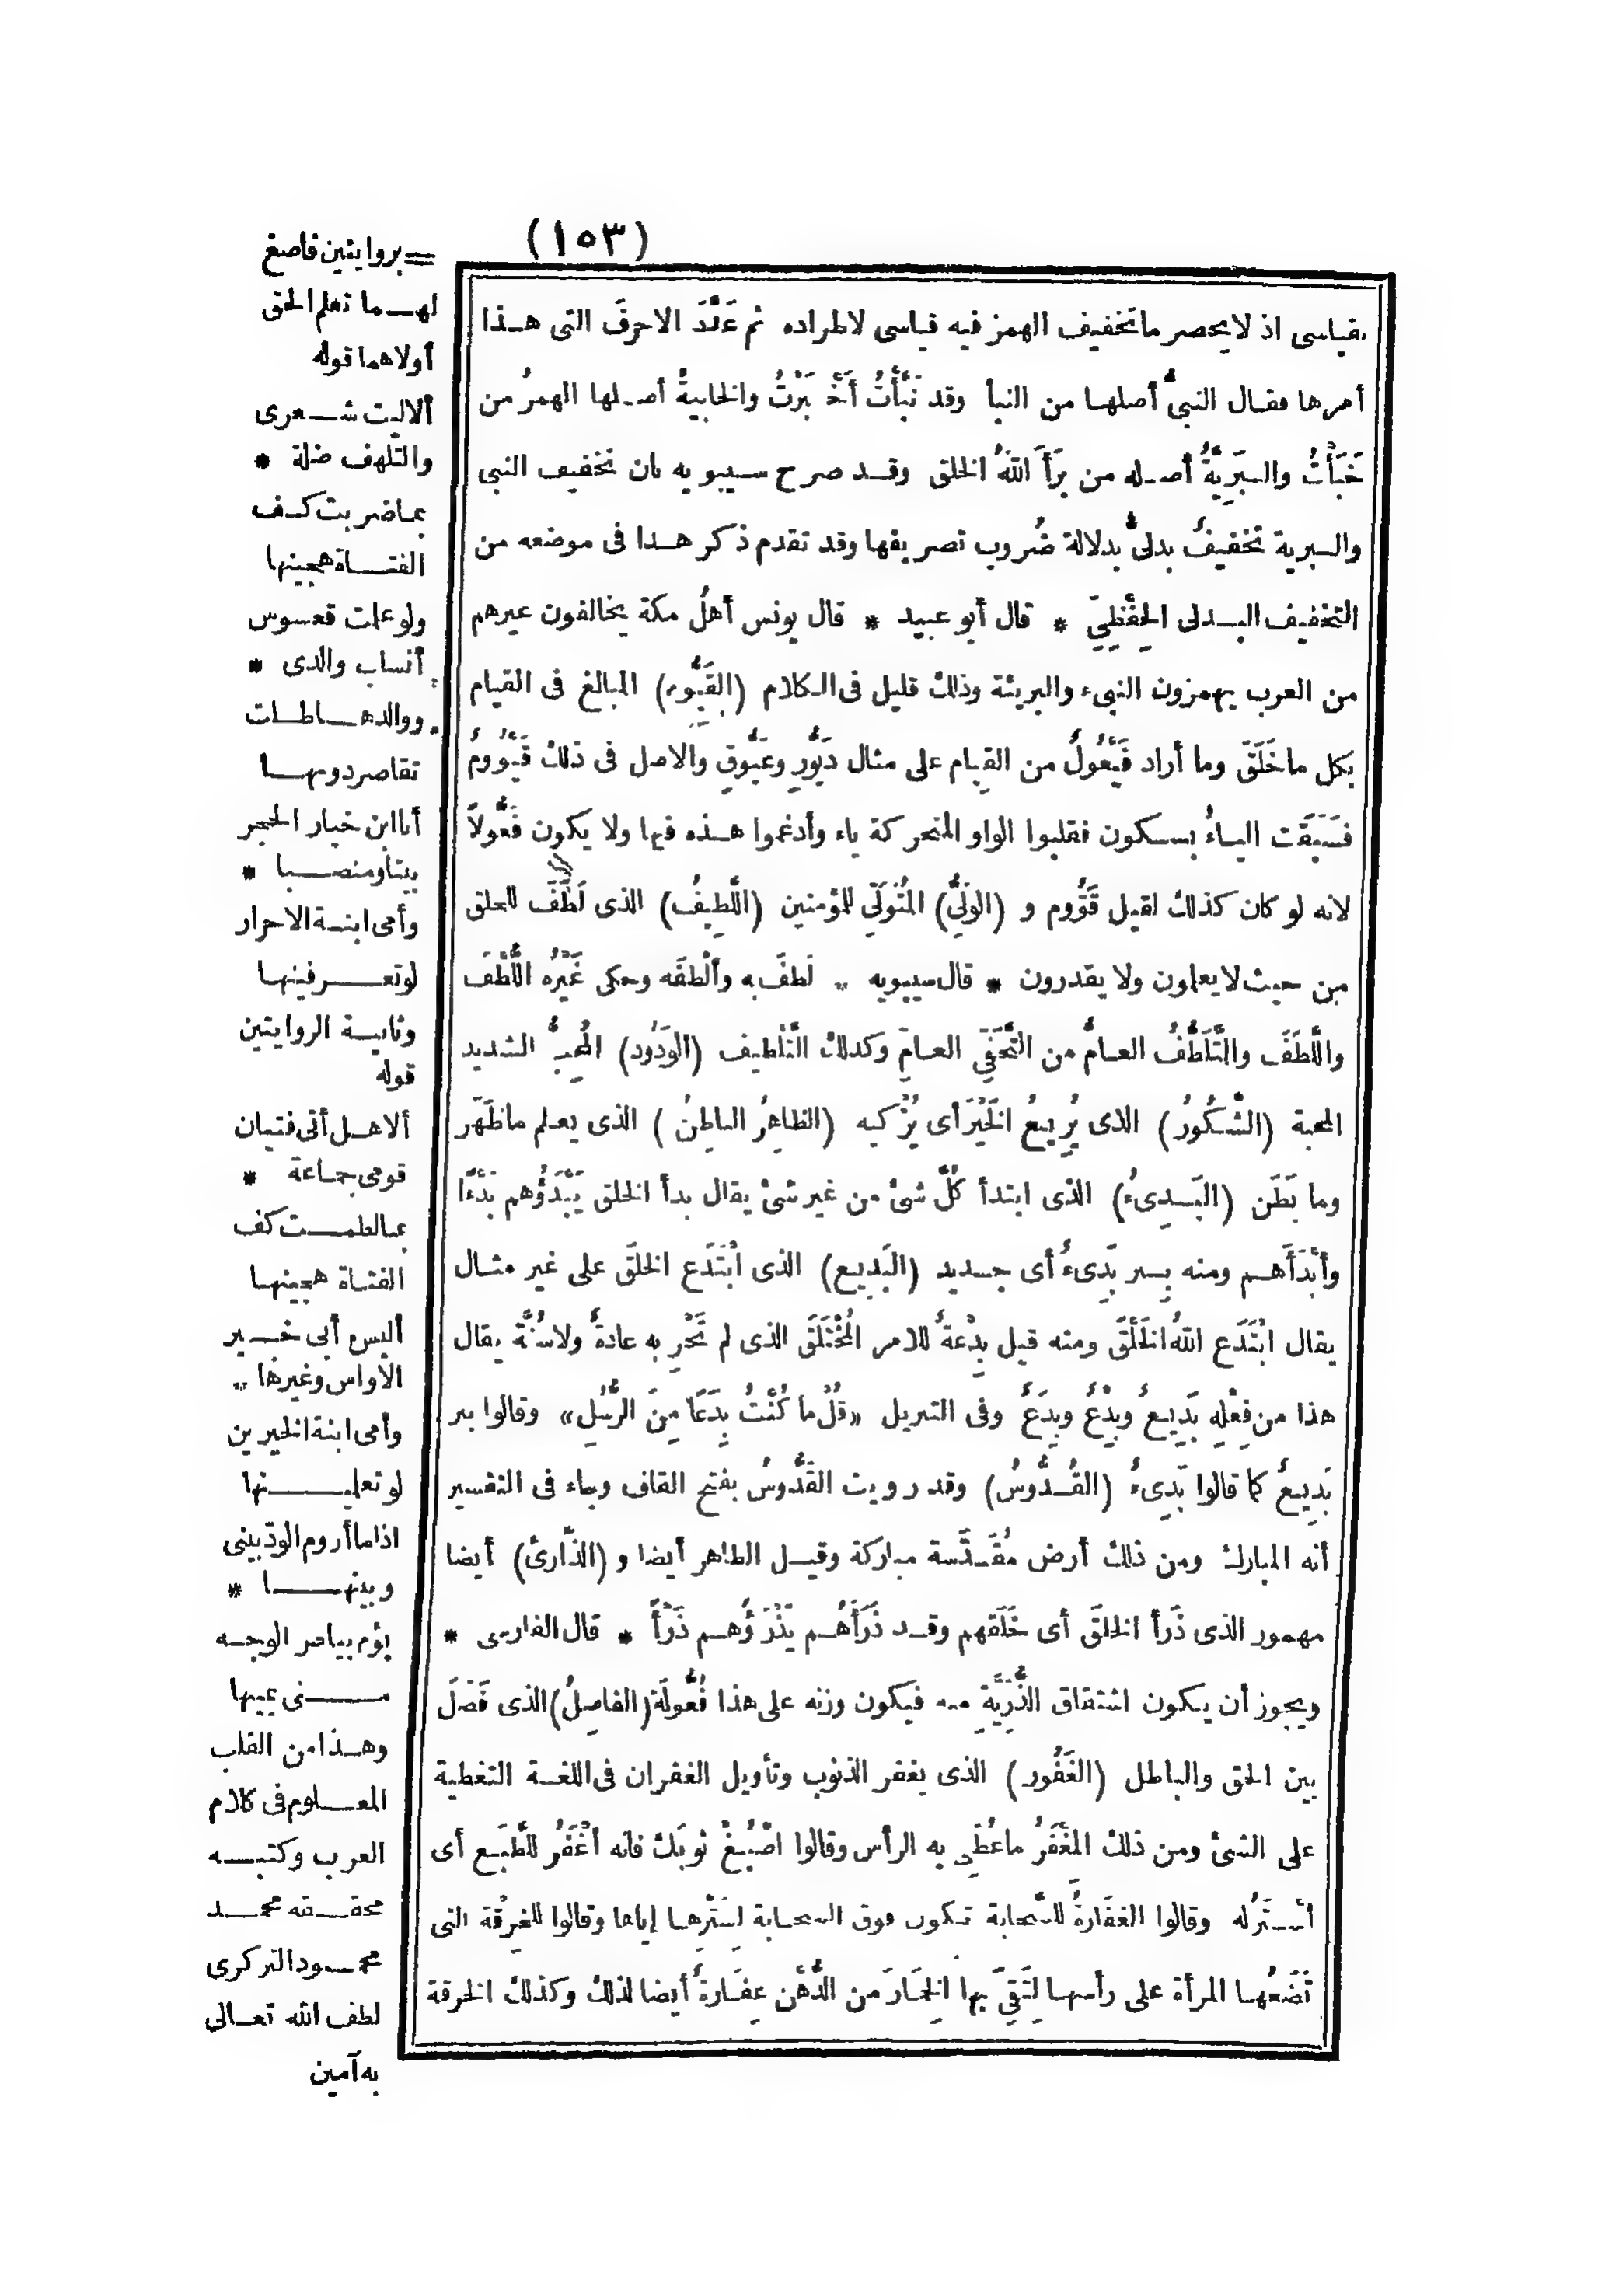 (١٥٣)
بقياسى اذ لا يحصر ما تخفيف الهمز فيه قياسى لاطراده ثم عَدَّدَ الاحرفَ التى هـذا
أمرها فقـال النبىُّ أصلهـا من النبا وقد نَبَّأْتُ أَخْبَرْتُ والخابيةُ أصـلها الهمزُ من
خَبَأْتُ والـبَرِيَّةُ أصـله من بَرَأَ اللهُ الخلق وقـد صرح سـيبويه بان تخفيف النبى
والـبرية تخفيفُ بدلىٌّ بدلالة ضُروب تصريفها وقد تقدم ذكر هـذا فى موضعه من
التخفيف البـدلى الحِفْظِىِّ * قال أبو عبيد * قال يونس أهلُ مكة يخالفون غيرهم
من العرب يهمزون النبىء والبريئة وذلك قليل فى الكلام (القَيُّوم) المبالغ فى القيام
بكل ما خَلَقَ وما أراد فَيْعُولٌ من القِيام على مثال دَيُّورٍ وعَيُّوقٍ والاصل فى ذلك قَيْوُومٌ
فسَبَقَت اليـاءُ بسـكون فقلبوا الواو المتحركة ياء وأدغموا هـذه فيها ولا يكون فَعُّولاً
لانه لو كان كذلك لقيل قَوُّوم و (الوَلِىُّ) المُتَوَلِّى للمؤمنين (اللَّطِيفُ) الذى لَطَفَ للخلق
من حيث لا يعلمون ولا يقدرون * قال سيبويه * لَطفَ به وأَلْطَفَه وحكى غَيْرُه اللُّطْفَ
واللَّطَفَ والتَّلَطُّفُ العـامُّ من التَّحَفِّى العـامِّ وكذلك التَّلْطيف (الوَدُود) المُحِبُّ الشديد
المحبة (الشَّكُورُ) الذى يُرِيعُ الخَيْرَ أى يُزْكيه (الظاهِرُ الباطِنُ) الذى يعـلم ما ظَهَرَ
وما بَطَن (البَـدِىءُ) الذى ابتدأ كُلَّ شئ من غير شئ يقال بدأ الخلق يَبْدَؤُهم بَدْءًا
وأَبْدَأَهـم ومنه بِـئر بَدِىءٌ أى جـديد (البَدِيـع) الذى ابْتَدَع الخلقَ على غير مثـال
يقال ابْتَدَع اللهُ الخَلْقَ ومنه قيل بِدْعةٌ للامر المُخْتَلَقِ الذى لم تَجْرِ به عادةٌ ولا سُنَّة يقال
هذا من فِعْلِه بَدِيـعٌ وبِدْعٌ وبِدَعٌ وفى التنزيل «قُلْ ما كُنْتُ بِدْعًا مِنَ الرُّسُلِ» وقالوا بئر
بَدِيـعٌ كما قالوا بَدِىءٌ (القُـدُّوسُ) وقد رويت القَدُّوسُ بفتح القاف وجاء فى التفسير
أنه المبارك ومن ذلك أرض مُقَـدَّسة مباركة وقيـل الطاهر أيضا و (الذَّارئ) أيضا
مهموز الذى ذَرأ الخلقَ أى خَلَقهم وقـد ذَرَأَهُـم يَذْرَؤُهـم ذَرْأً * قال الفارسى *
ويجوز أن يـكون اشتقاق الذُّرِّيَّةِ منه فيكون وزنه على هذا فُعُّولَة (الفاصِلُ) الذى فَصَلَ
بين الحق والباطل (الغَفُور) الذى يغفر الذنوب وتأويل الغفران فى اللغـة التغطية
على الشئ ومن ذلك المِغْفَرُ ما غُطِّى به الرأس وقالوا اصْبُـغْ ثوبَك فانه أَغْفَرُ للطَّبَـع أى
أسـتَرُ له وقالوا الغِفَارةُ للسَّحابة تكون فوق السحـابة لِسَتْرِهـا إياها وقالوا للخِرْقة التى
تَضَعُهـا المرأة على رأسهـا لِتَقِىَ بها الخِمَـارَ من الدُّهْن غِفَـارةٌ أيضا لذلك وكذلك الخرقة
= بروايتين فاصغ
لهــما تعلم الحق
أولاهما قوله
ألا ليت شــعرى
والتلهف ضلة *
بما ضربت كـف
الفتــاة هجينها
ولو علمت قعسوس
أنساب والدى *
ووالدهــاظلــت
تقاصر دونهــا
أنا ابن خيار الحجر
بيتا ومنصـــبا *
وأمى ابنـة الاحرار
لو تعــــرفينهـا
وثانيــة الروايتين
قوله
ألا هــل أتى فتيان
قومى جماعة *
بما لطمـــت كف
الفتاة هجينهـا
أليس أبى خــير
الأواس وغيرها *
وأمى ابنة الخيرين
لو تعليـــــنها
اذا ما أروم الودّ بينى
وبينهـــــا *
يؤم بياض الوجـه
مـــــنى يمينها
وهـذا من القلب
المعـــلوم فى كلام
العرب وكتبـــه
محقـــقه محمــد
محمـــود التركزى
لطف الله تعـالى
به آمين